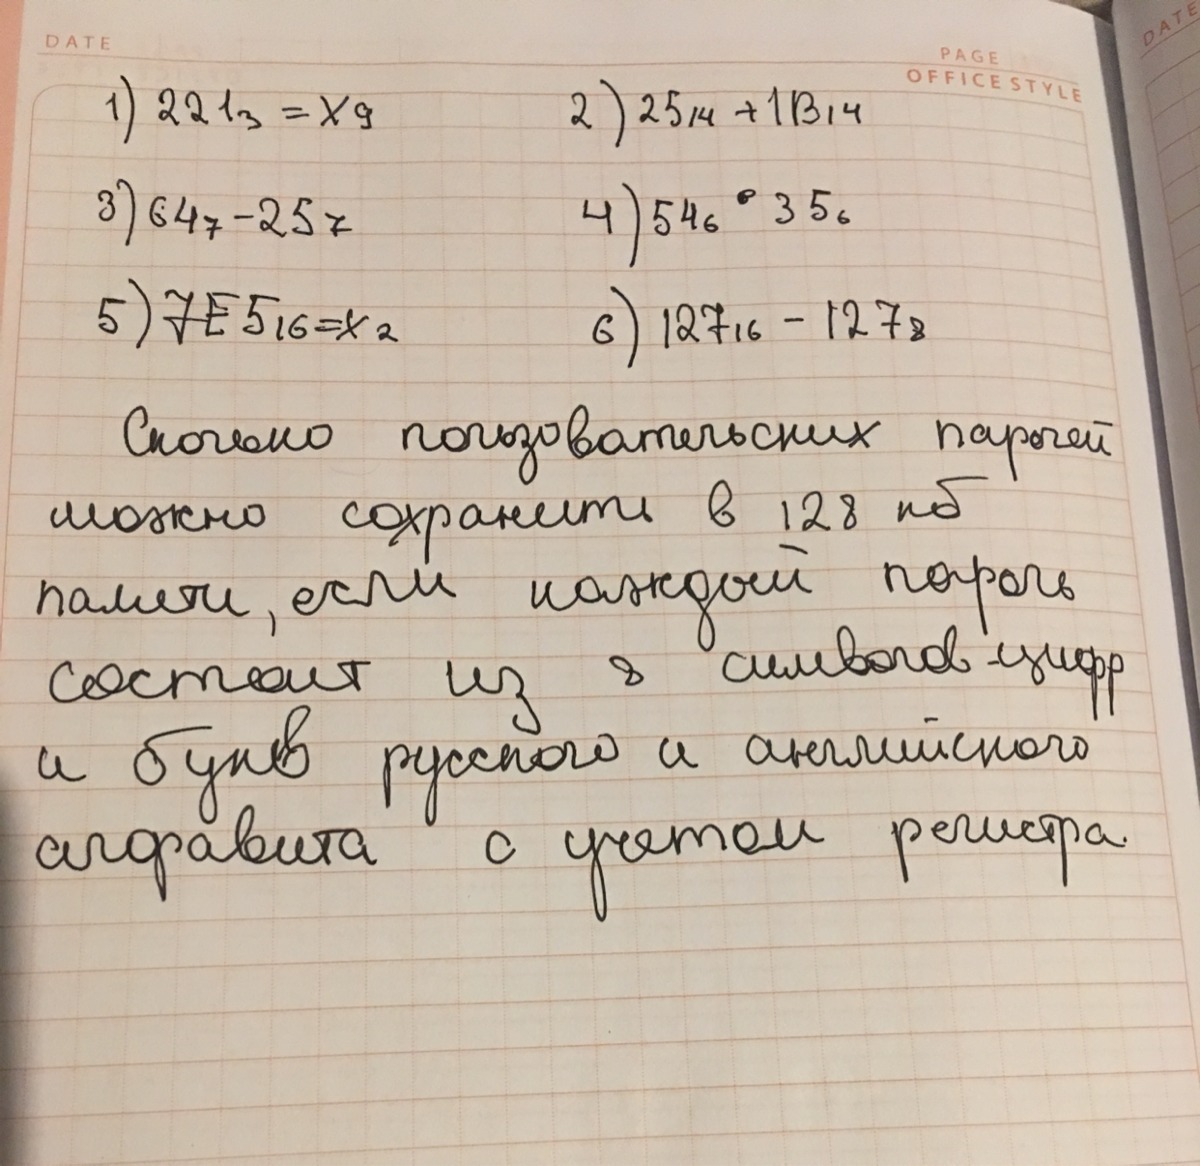 DATE
PAGE
OFFICE STYLE
DATE
1) 221₃ = x₉ 2) 25₁₄ + 1B₁₄
3) 64₇ - 25₇ 4) 54₆ · 35₆
5) 7E5₁₆ = x₂ 6) 127₁₆ - 127₈
Сколько пользовательских паролей
можно сохранить в 128 кб
памяти, если каждый пароль
состоит из 8 символов-цифр
и букв русского и английского
алфавита с учетом регистра.